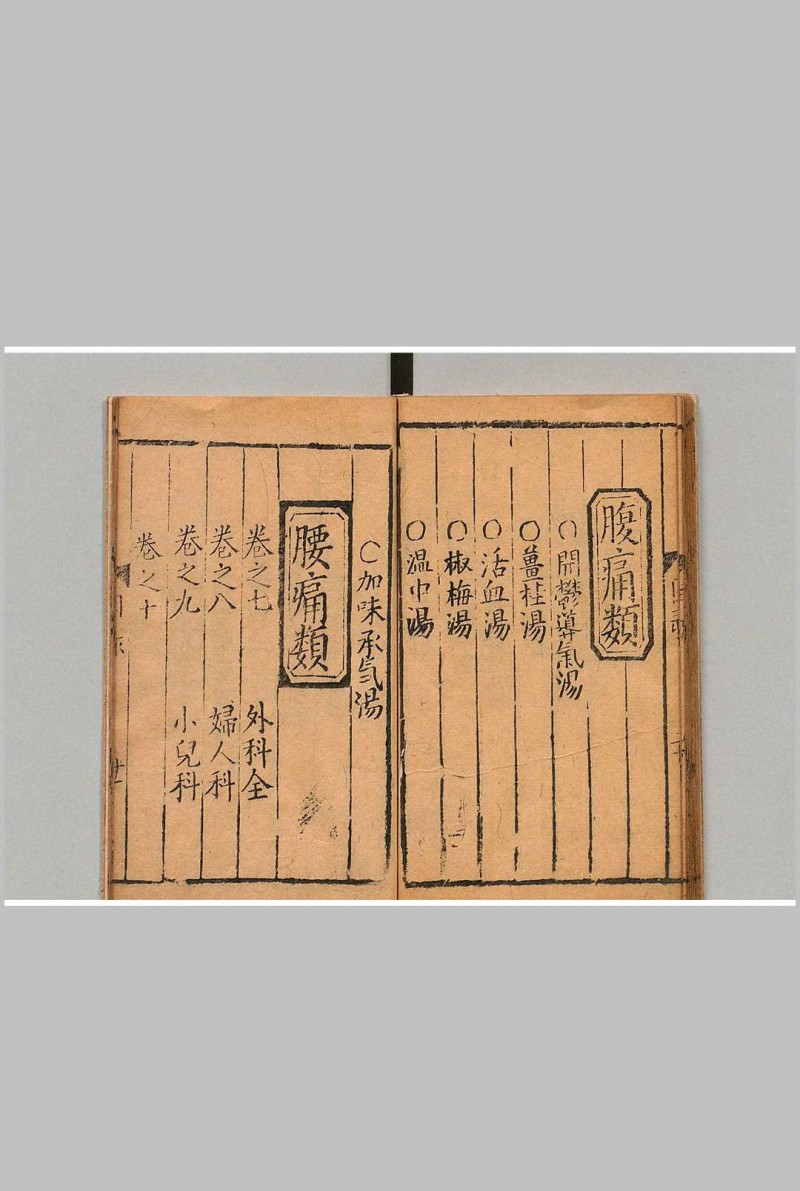 腹痛類
〇開鬱導氣湯
〇薑桂湯
〇活血湯
〇椒梅湯
〇温中湯
〇加味承气湯
腰痛類
卷之七 外科全
卷之八 婦人科
卷之九 小兒科
卷之十